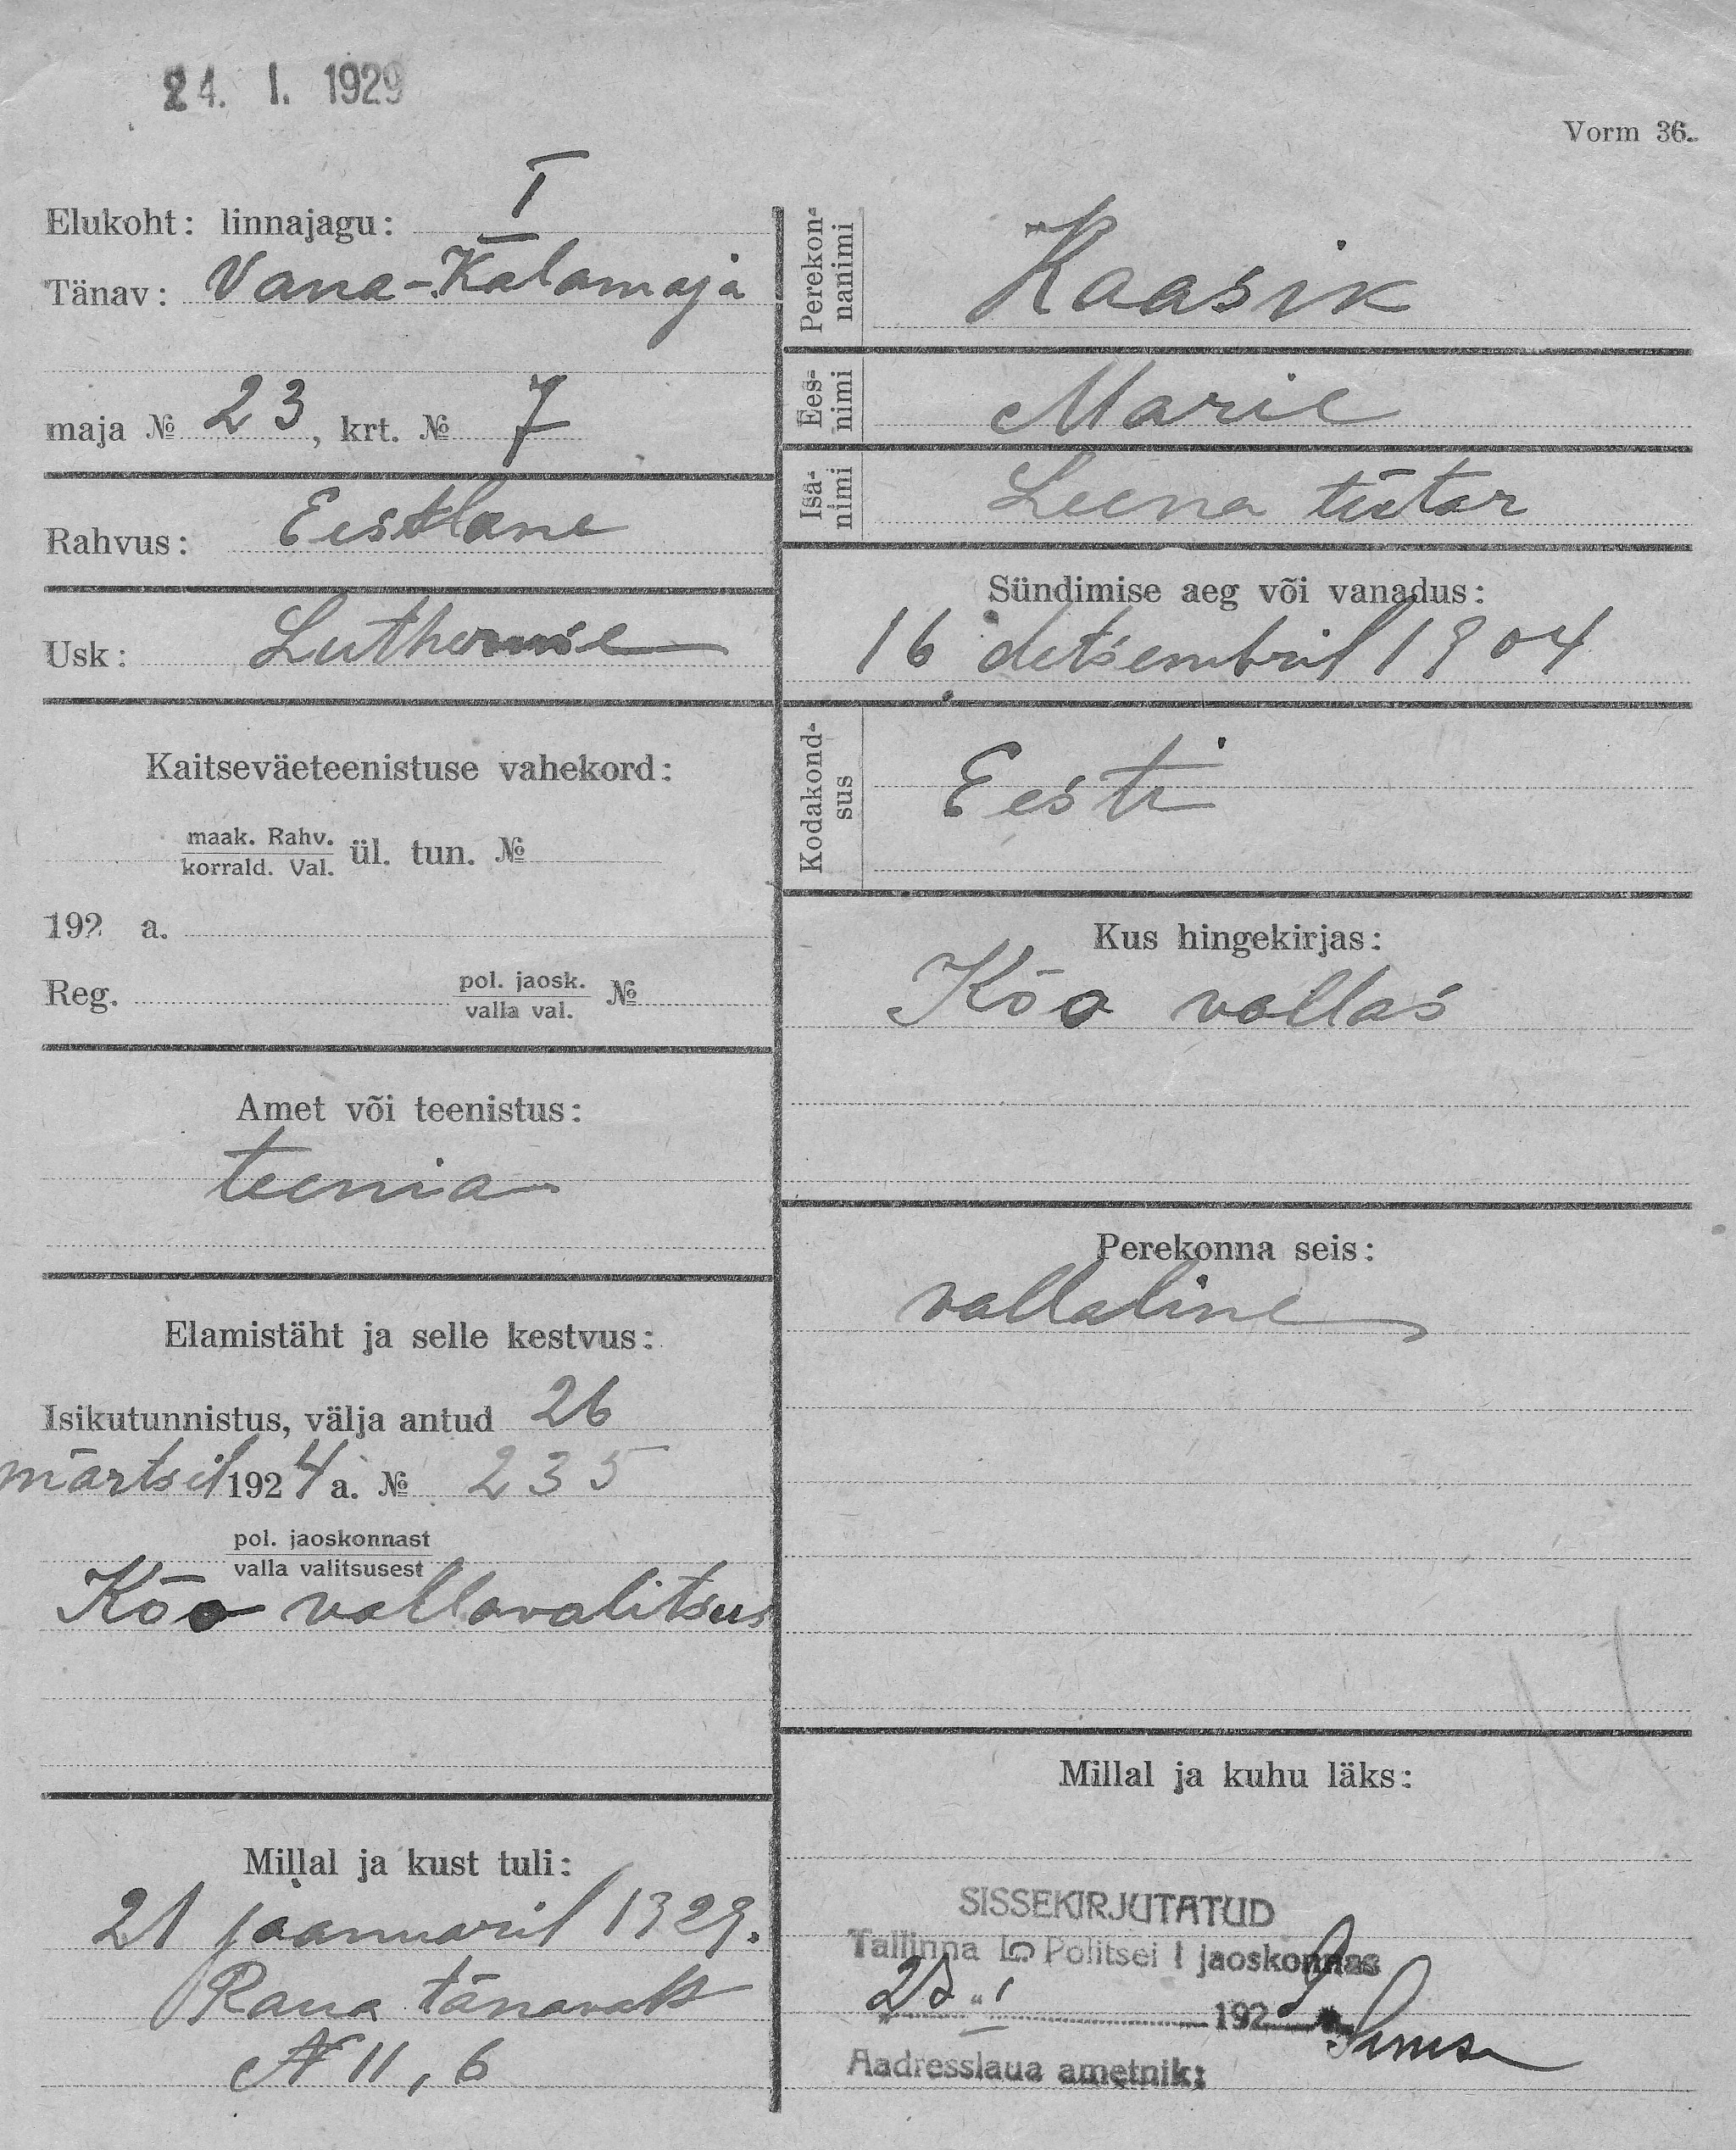 24. I. 1929
Vorm 36.
Elukoht: linnajagu: I
Tänav: Vana-Kalamaja
maja № 23, krt. № 7
Rahvus: Eestlane
Usk: Lutheruse
Kaitseväeteenistuse vahekord:
maak. Rahv.
korrald. Val. ül. tun. №
192 a.
Reg. pol. jaosk. №
valla val.
Amet või teenistus:
teenia
Elamistäht ja selle kestvus:
Isikutunnistus, välja antud 26
märtsil 1924 a. № 235
pol. jaoskonnast
valla valitsusest
Kõo vallavalitsus
Millal ja kust tuli:
21 jaanuaril 1929.
Raua tänavalt
N 11, 6
Perekon-
nanimi Kaasik
Ees-
nimi Marie
Isa-
nimi Leena tütar
Sündimise aeg või vanadus:
16 detsembril 1904
Kodakond-
sus Eesti
Kus hingekirjas:
Kõo vallas
Perekonna seis:
vallaline
Millal ja kuhu läks:
SISSEKIRJUTATUD
Tallinna Lo Politsei I jaoskonnas
1929
Aadresslaua ametnik: